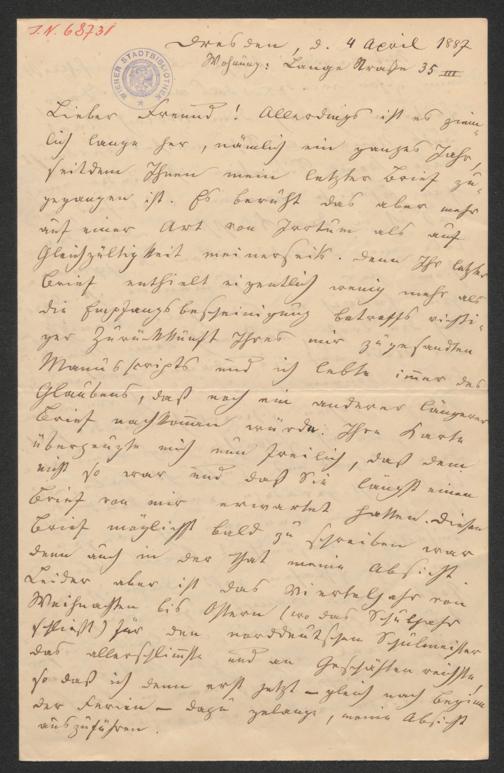 I.N. 68731
WIENER STADTBIBLIOTHEK
Dresden, d. 4 April 1887
Wohnung: Lange Straße 35 III
Lieber Freund! Allerdings ist es ziem-
lich lange her, nämlich ein ganzes Jahr,
seitdem Ihnen mein letzter Brief zu-
gegangen ist. Es beruht das aber mehr
auf einer Art von Irrtum als auf
Gleichgültigkeit meinerseits. Denn Ihr letzter
Brief enthielt eigentlich wenig mehr als
die Empfangsbescheinigung betreffs richti-
ger Zurückkunft Ihres mir zugesandten
Manuscripts und ich lebte immer des
Glaubens, daß noch ein anderer längerer
Brief nachkommen würde. Ihre Karte
überzeugte mich nun freilich, daß dem
nicht so war und daß Sie längst einen
Brief von mir erwartet hatten. Diesen
Brief möglichst bald zu schreiben war
denn auch in der That meine Absicht.
Leider aber ist das Vierteljahr von
Weihnachten bis Ostern (wo das Schuljahr
schließt) für den norddeutschen Schulmeister
das allerschlimmste und an Geschäften reichste,
so daß ich denn erst jetzt – gleich nach Beginn
der Ferien – dazu gelange, meine Absicht
auszuführen.